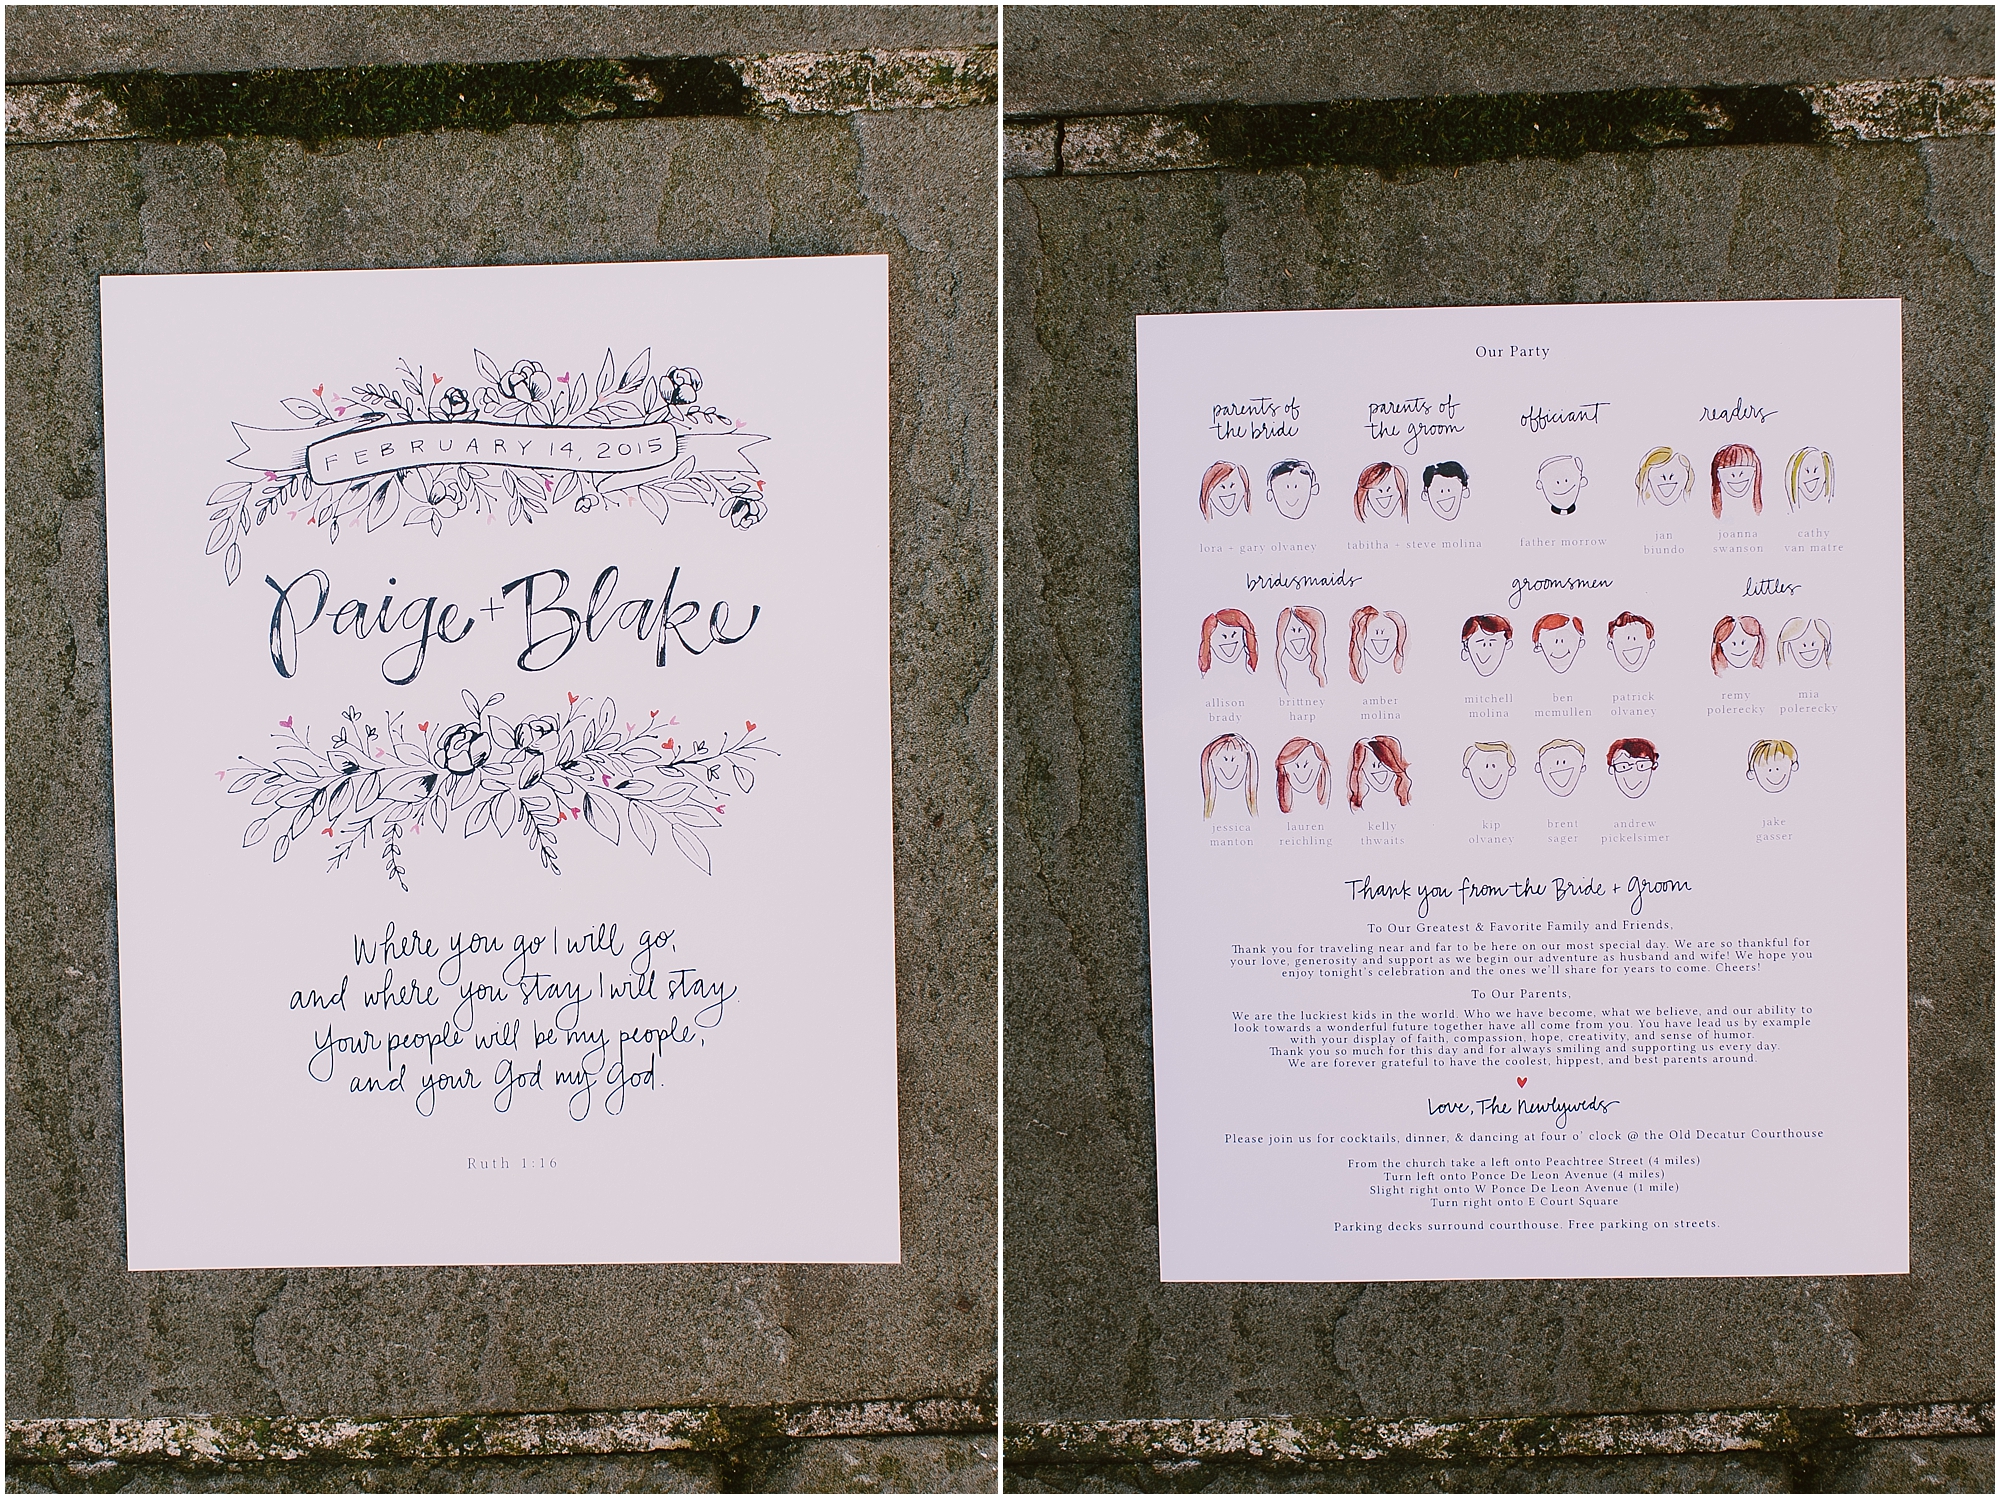 FEBRUARY 14, 2015
Paige + Blake
Where you go I will go,
and where you stay I will stay.
Your people will be my people,
and your God my God.
Ruth 1:16
Our Party
parents of
the bride
parents of
the groom
officiant
readers
lora + gary olvaney
tabitha + steve molina
father morrow
jan
biundo
joanna
swanson
cathy
van matre
bridesmaids
groomsmen
littles
allison
brady
brittney
harp
amber
molina
mitchell
molina
ben
mcmullen
patrick
olvaney
remy
polerecky
mia
polerecky
jessica
manton
lauren
reichling
kelly
thwaits
kip
olvaney
brent
sager
andrew
pickelsimer
jake
gasser
Thank you from the Bride + Groom
To Our Greatest & Favorite Family and Friends,
Thank you for traveling near and far to be here on our most special day. We are so thankful for
your love, generosity and support as we begin our adventure as husband and wife! We hope you
enjoy tonight's celebration and the ones we'll share for years to come. Cheers!
To Our Parents,
We are the luckiest kids in the world. Who we have become, what we believe, and our ability to
look towards a wonderful future together have all come from you. You have lead us by example
with your display of faith, compassion, hope, creativity, and sense of humor.
Thank you so much for this day and for always smiling and supporting us every day.
We are forever grateful to have the coolest, hippest, and best parents around.
Love, The Newlyweds
Please join us for cocktails, dinner, & dancing at four o' clock @ the Old Decatur Courthouse
From the church take a left onto Peachtree Street (4 miles)
Turn left onto Ponce De Leon Avenue (4 miles)
Slight right onto W Ponce De Leon Avenue (1 mile)
Turn right onto E Court Square
Parking decks surround courthouse. Free parking on streets.